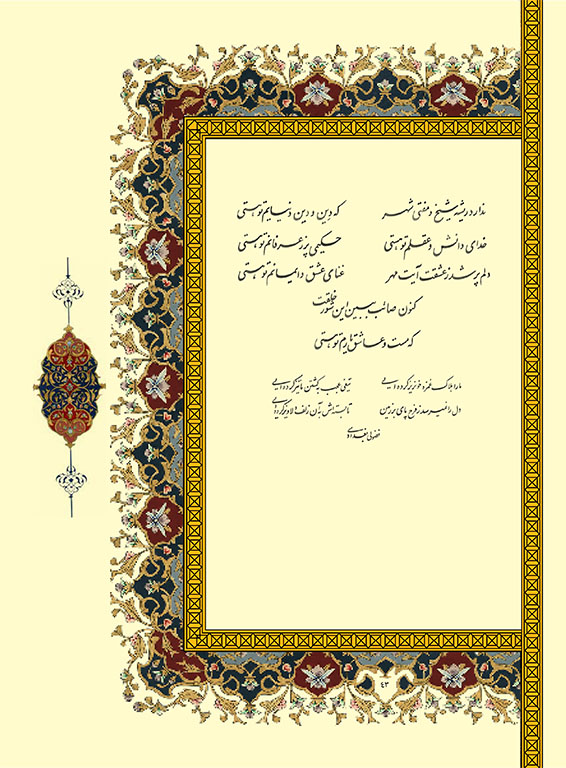 ندارد ریشه شیخ و مفتی شهر که دین و دین و دنیایم تو هستی
خدای دانش و عقلم تو هستی حکیمی پر ز عرفانم تو هستی
دلم پر شد ز عشقت آیت مهر غنای عشق و ایمانم تو هستی
کنون صائب ببین این شور خلقت
که مست و عاشق یارم تو هستی
ما را هلاک غمزه خونریز کرده‌ای تیغی عجب به کشتن ما تیز کرده‌ای
دل را نمیرسد ز فرح پای بر زمین تا بسته‌اش به آن زلف دلاویز کرده‌ای
فضولی بغدادی
۴۳